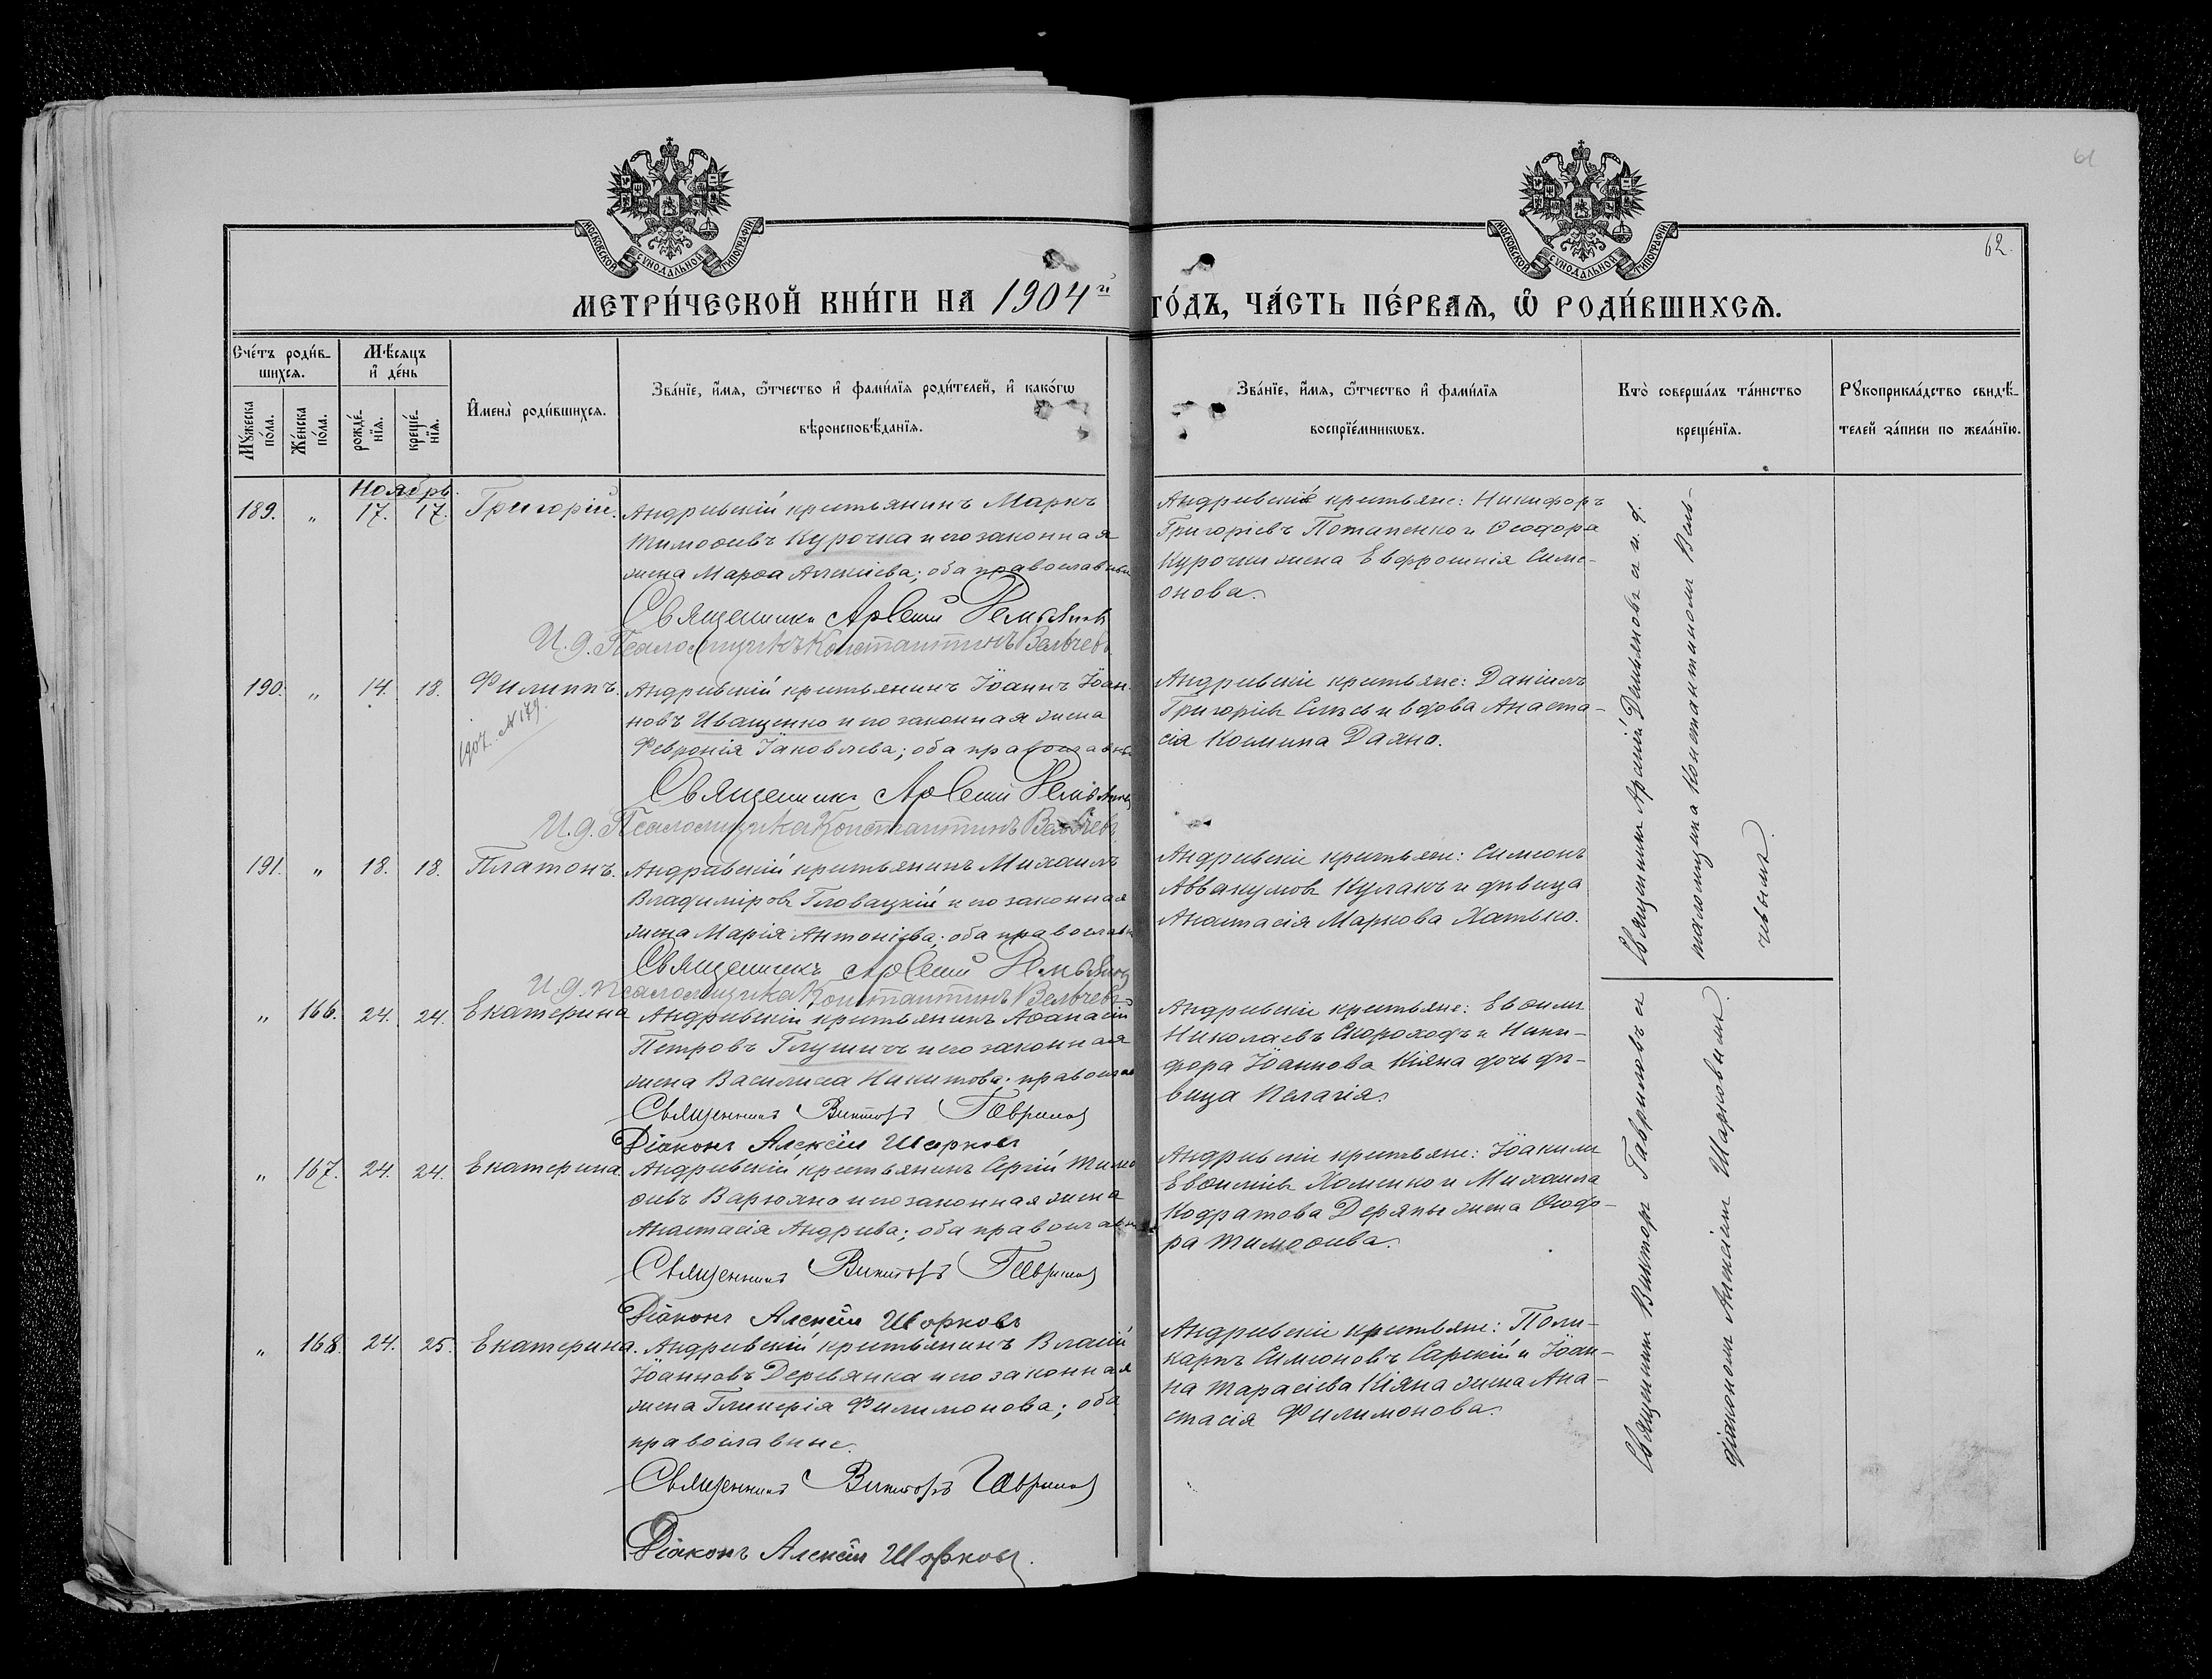 61
62.
МОСКОВСКОЙ СѴНОДАЛЬНОЙ ТИПОГРАФІИ
МОСКОВСКОЙ СѴНОДАЛЬНОЙ ТИПОГРАФІИ
МЕТРИ́ЧЕСКОЙ КНИ́ГИ НА 1904й ГО́ДЪ, ЧА́СТЬ ПЕ́РВАѦ, Ѽ РОДИ́ВШИХСѦ.
Счéтъ роди́в-
шихсѧ.
Мꙋ́жеска по́ла.
Же́нска по́ла.
Мѣ́сѧцъ
и҆ де́нь
рожде́-
нїѧ.
креще́-
нїѧ.
И҆мена̀ роди́вшихсѧ.
Зва́нїе, и҆́мѧ, ѻ҆́тчество и҆ фами́лїѧ роди́телей, и҆ како́гѡ
вѣроисповѣ́данїѧ.
Зва́нїе, и҆́мѧ, ѻ҆́тчество и҆ фами́лїѧ
воспрїе́мникѡвъ.
Кто̀ соверша́лъ та́инство
креще́нїѧ.
Рꙋкоприкла́дство свидѣ́-
телей за́писи по жела́нїю.
Ноябрь.
189. " 17. 17. Григорій. Андреевскій крестьянинъ Маркъ
Тимоѳеевъ Курочка и его законная
жена Марѳа Алексіева; оба православные
Священникъ Арсеній Демьяновъ
И. д. Псаломщика Константинъ Вельчевъ
Андреевскіе крестьяне: Никифоръ
Григоріевъ Потапенко и Ѳеодора
Курочки жена Евфросинія Симе-
онова.
190. " 14. 18. Филиппъ. Андреевскій крестьянинъ Іоаннъ Іоан-
новъ Иващенко и его законная жена
Февронія Іаковлева; оба православные
1907. №179.
Священникъ Арсеній Демьяновъ
И. д. Псаломщика Константинъ Вельчевъ
Андреевскіе крестьяне: Даніилъ
Григоріевъ и вдова Анаста-
сія Даяно.
191. " 18. 18. Платонъ. Андреевскій крестьянинъ Михаилъ
Владиміровъ Гловацкій и его законная
жена Марія Антоніева; оба православн
Священникъ Арсеній Демьяновъ
И. д. псаломщика Константинъ Вельчевъ
Андреевскіе крестьяне: Симеонъ
Аввакумовъ Кулакъ и дѣвица
Анастасія Маркова Хатько.
Священникъ Арсеній Демьяновъ съ и. д.
псаломщика Константиномъ Вель-
чевымъ.
" 166. 24. 24. Екатерина Андреевскій крестьянинъ Аѳанасій
Петровъ Глушичъ и его законная
жена Василиса Никитова; православ
Священникъ Викторъ Гавриловъ
Діаконъ Алексій Шарковъ
Андреевскіе крестьяне: Евѳимъ
Николаевъ Скороходъ и Ники-
фора Іоаннова Кіяна дочь дѣ-
вица Пелагія.
" 167. 24. 24. Екатерина. Андреевскій крестьянинъ Сергій Тимо
ѳеевъ Варюхно и его законная жена
Анастасія Андреева; оба православные
Священникъ Викторъ Гавриловъ
Діаконъ Алексій Шарковъ
Андреевскіе крестьяне: Іоакимъ
Евѳиміевъ Хоменко и Михаила
Кодратова Деряпы жена Ѳеодо-
ра Тимоѳеева.
" 168. 24. 25. Екатерина. Андреевскій крестьянинъ Власій
Іоанновъ Деревянка и его законная
жена Гликерія Филимонова; оба
православные.
Священникъ Викторъ Гавриловъ
Діаконъ Алексій Шарковъ.
Андреевскіе крестьяне: Поли-
карпъ Симеоновъ Сарскій и Іоан-
на Тарасіева Кіяна жена Ана-
стасія Филимонова.
Священникъ Викторъ Гавриловъ съ
діакономъ Алексіемъ Шарковымъ.